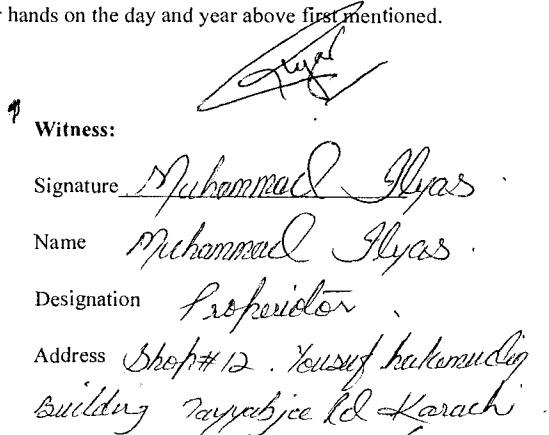 hands on the day and year above first mentioned.
Witness:
Signature Muhammad Ilyas
Name Muhammad Ilyas
Designation Properidtor
Address Shop # 12. Yousuf
Building Tayyabjee Rd Karachi